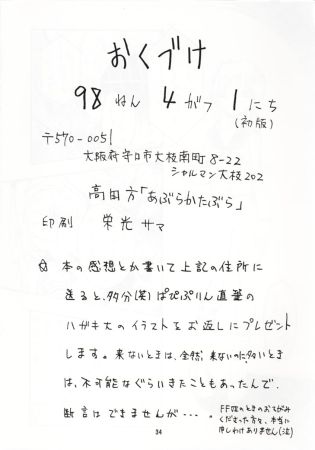 おくづけ
98ねん 4がつ 1にち
(初版)
〒570-0051
大阪府守口市大枝南町8-22
シャルマン大枝202
高田方「あぶらかたぶら」
印刷 栄光サマ
✩ 本の感想とか書いて上記の住所に
送ると、多分(笑)ぱぴぷりん直筆の
ハガキ大のイラストをお返しにプレゼント
します。来ないときは、全然来ないのに、多いとき
は、不可能なぐらいきたこともあったんで、
断言はできませんが・・・。
FF Ⅶのときのおてがみ
くださった方々、本当に
申しわけありません(泣)
34